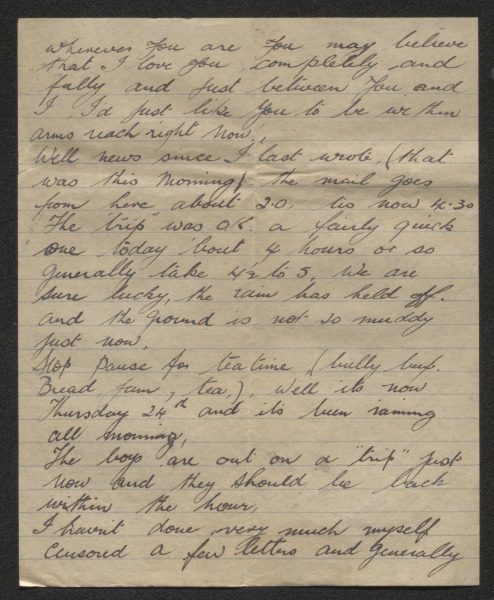 whenever you are you may believe
that I love you, completely and
fully and just between you and
I, I'd just like you to be within
arms reach right now,
Well news since I last wrote, (that
was this morning) the mail goes
from here about 2.0. tis now 4.30
The "trip" was O.K. a fairly quick
one today 'bout 4 hours or so
generally take 4½ to 5, We are
sure lucky, the rain has held off.
and the ground is not so muddy
just now,
Stop Pause for tea time, (bully beef.
Bread, Jam, tea), Well its now
Thursday 24th and its been raining
all morning,
The boys are out on a "trip" just
now and they should be back
within the hour,
I haven't done very much myself
censored a few letters and generally